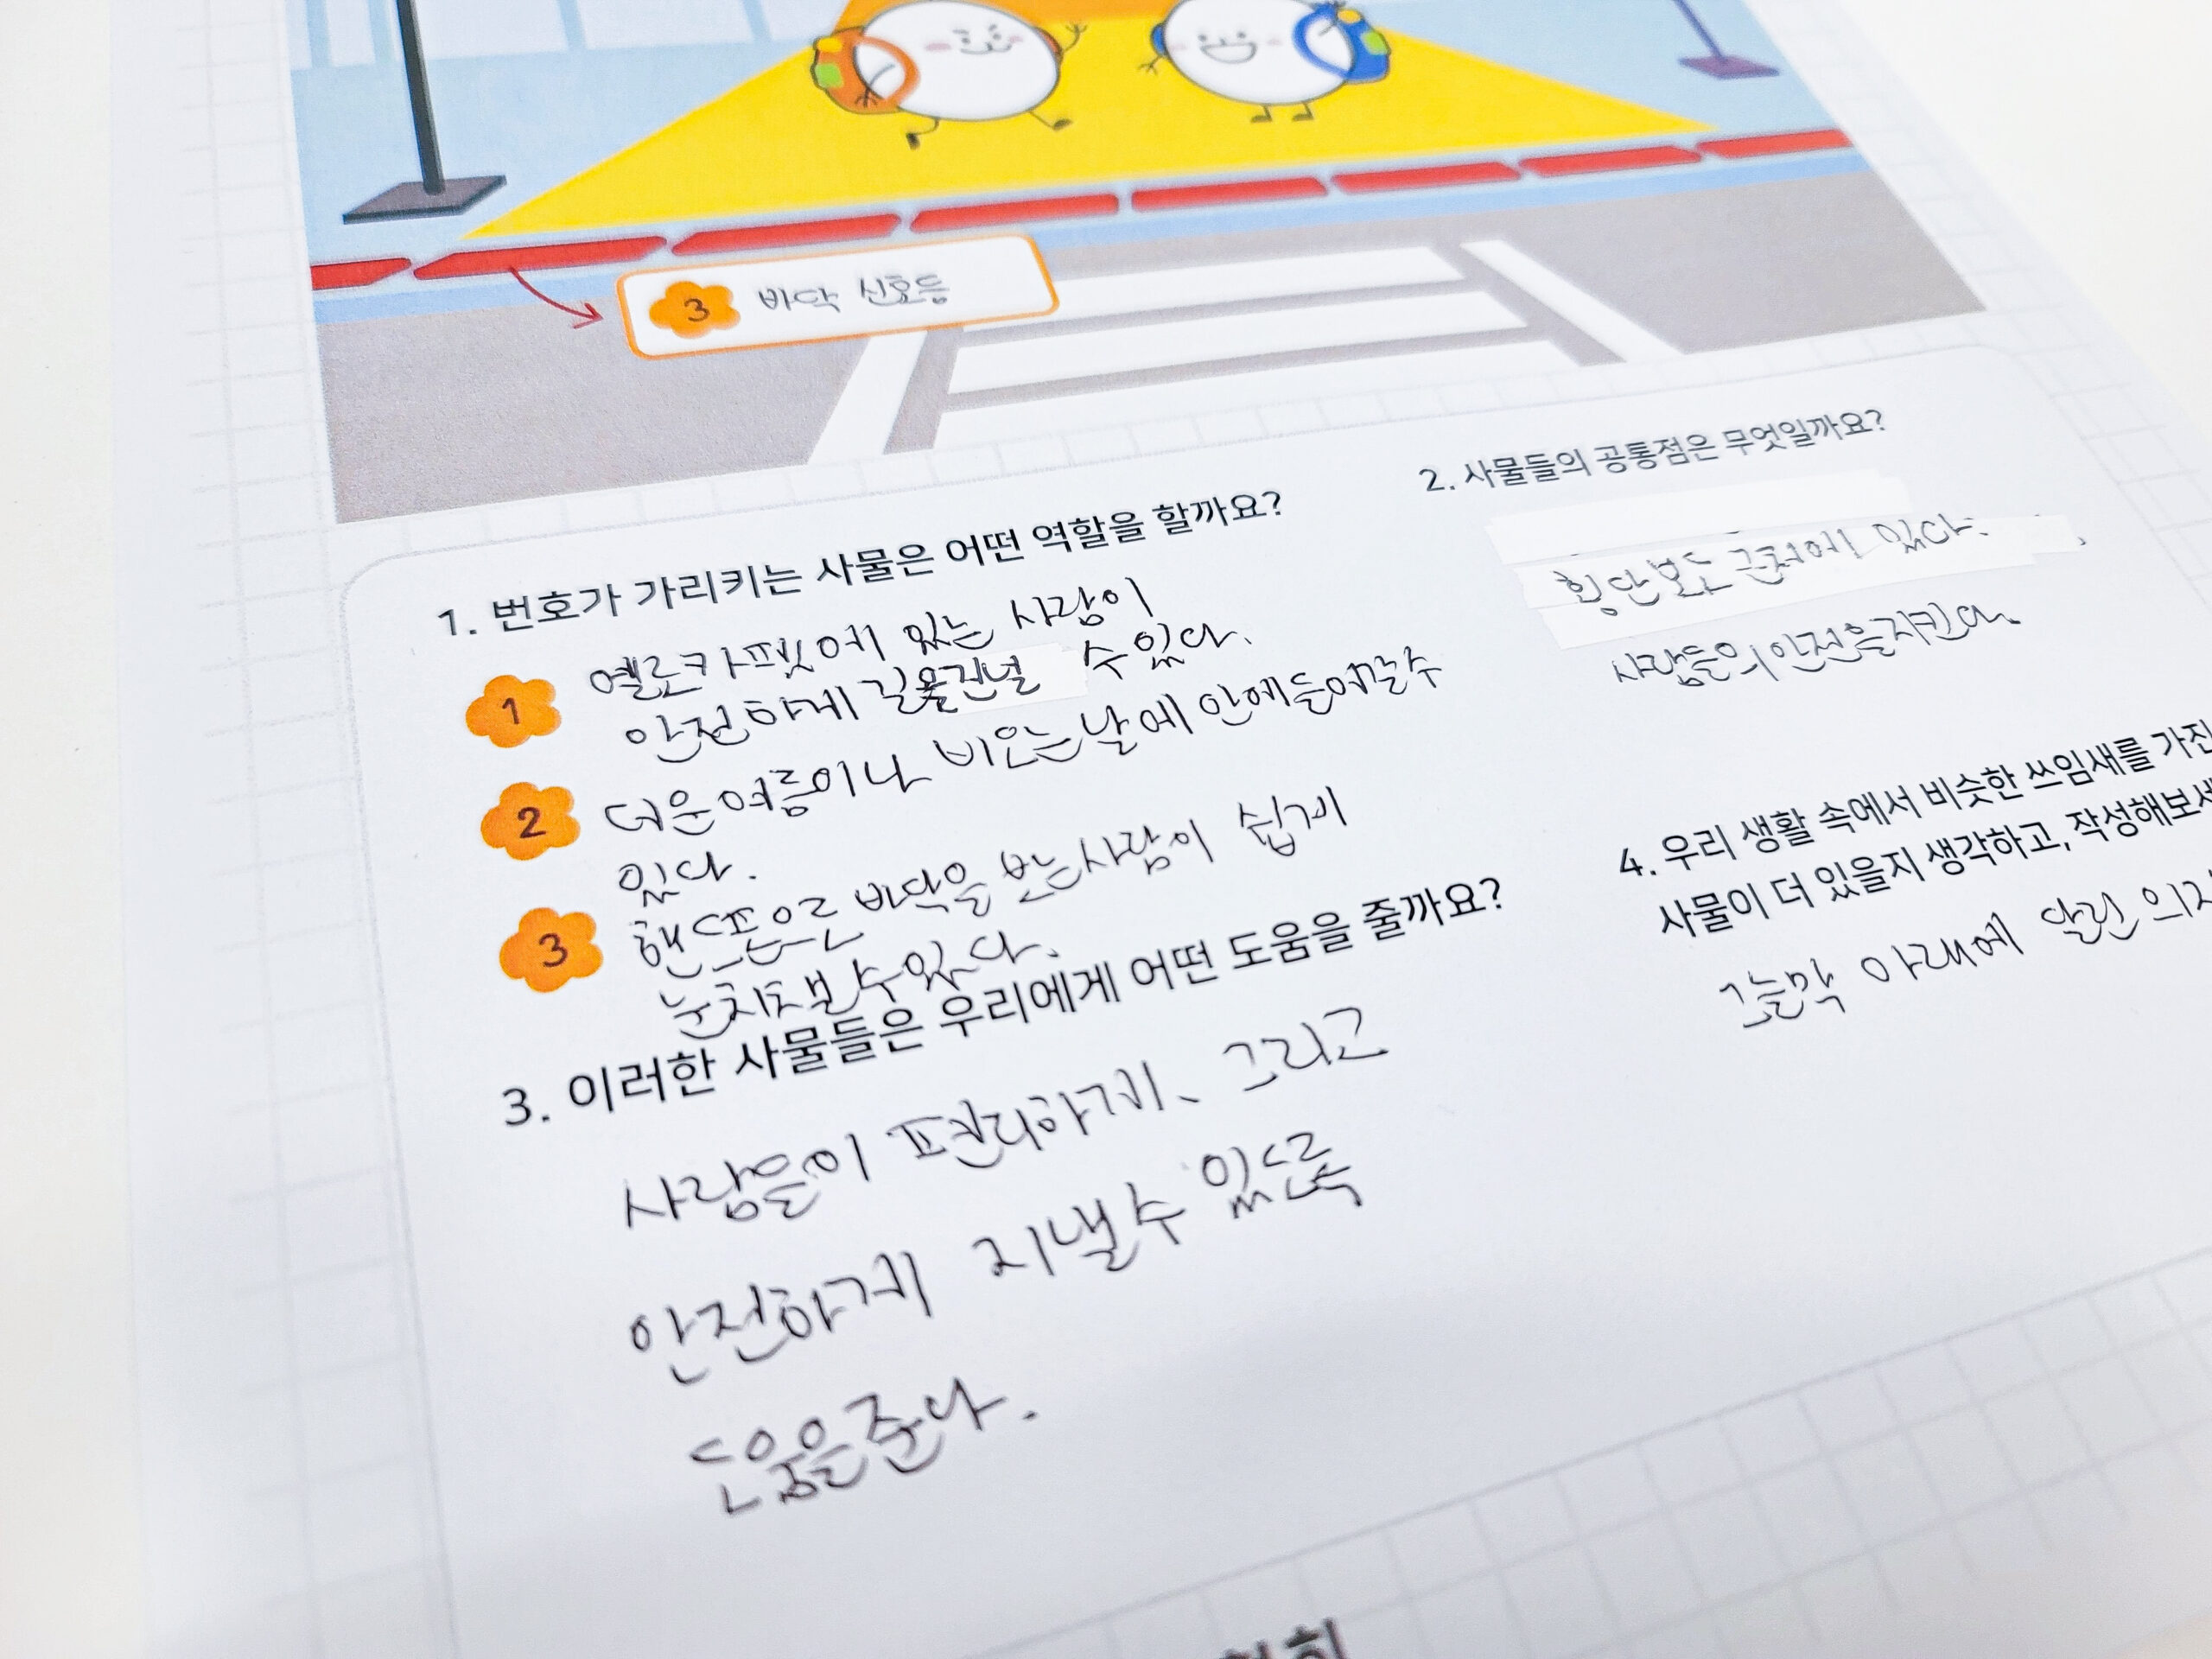 3 바닥 신호등
1. 번호가 가리키는 사물은 어떤 역할을 할까요?
1 옐로카펫에 있는 사람이
안전하게 길을건널 수있다.
2 더운여름이나 비오는날에 안에들어갈수
있다.
3 핸드폰으로 바닥을 보는사람이 쉽게
눈치챌수있다.
2. 사물들의 공통점은 무엇일까요?
횡단보도 근처에 있다.
사람들의안전을지킨다.
3. 이러한 사물들은 우리에게 어떤 도움을 줄까요?
사람들이 편리하게、그리고
안전하게 지낼수 있도록
도움을준다.
4. 우리 생활 속에서 비슷한 쓰임새를 가진
사물이 더 있을지 생각하고, 작성해보세
그늘막 아래에 달린 의자